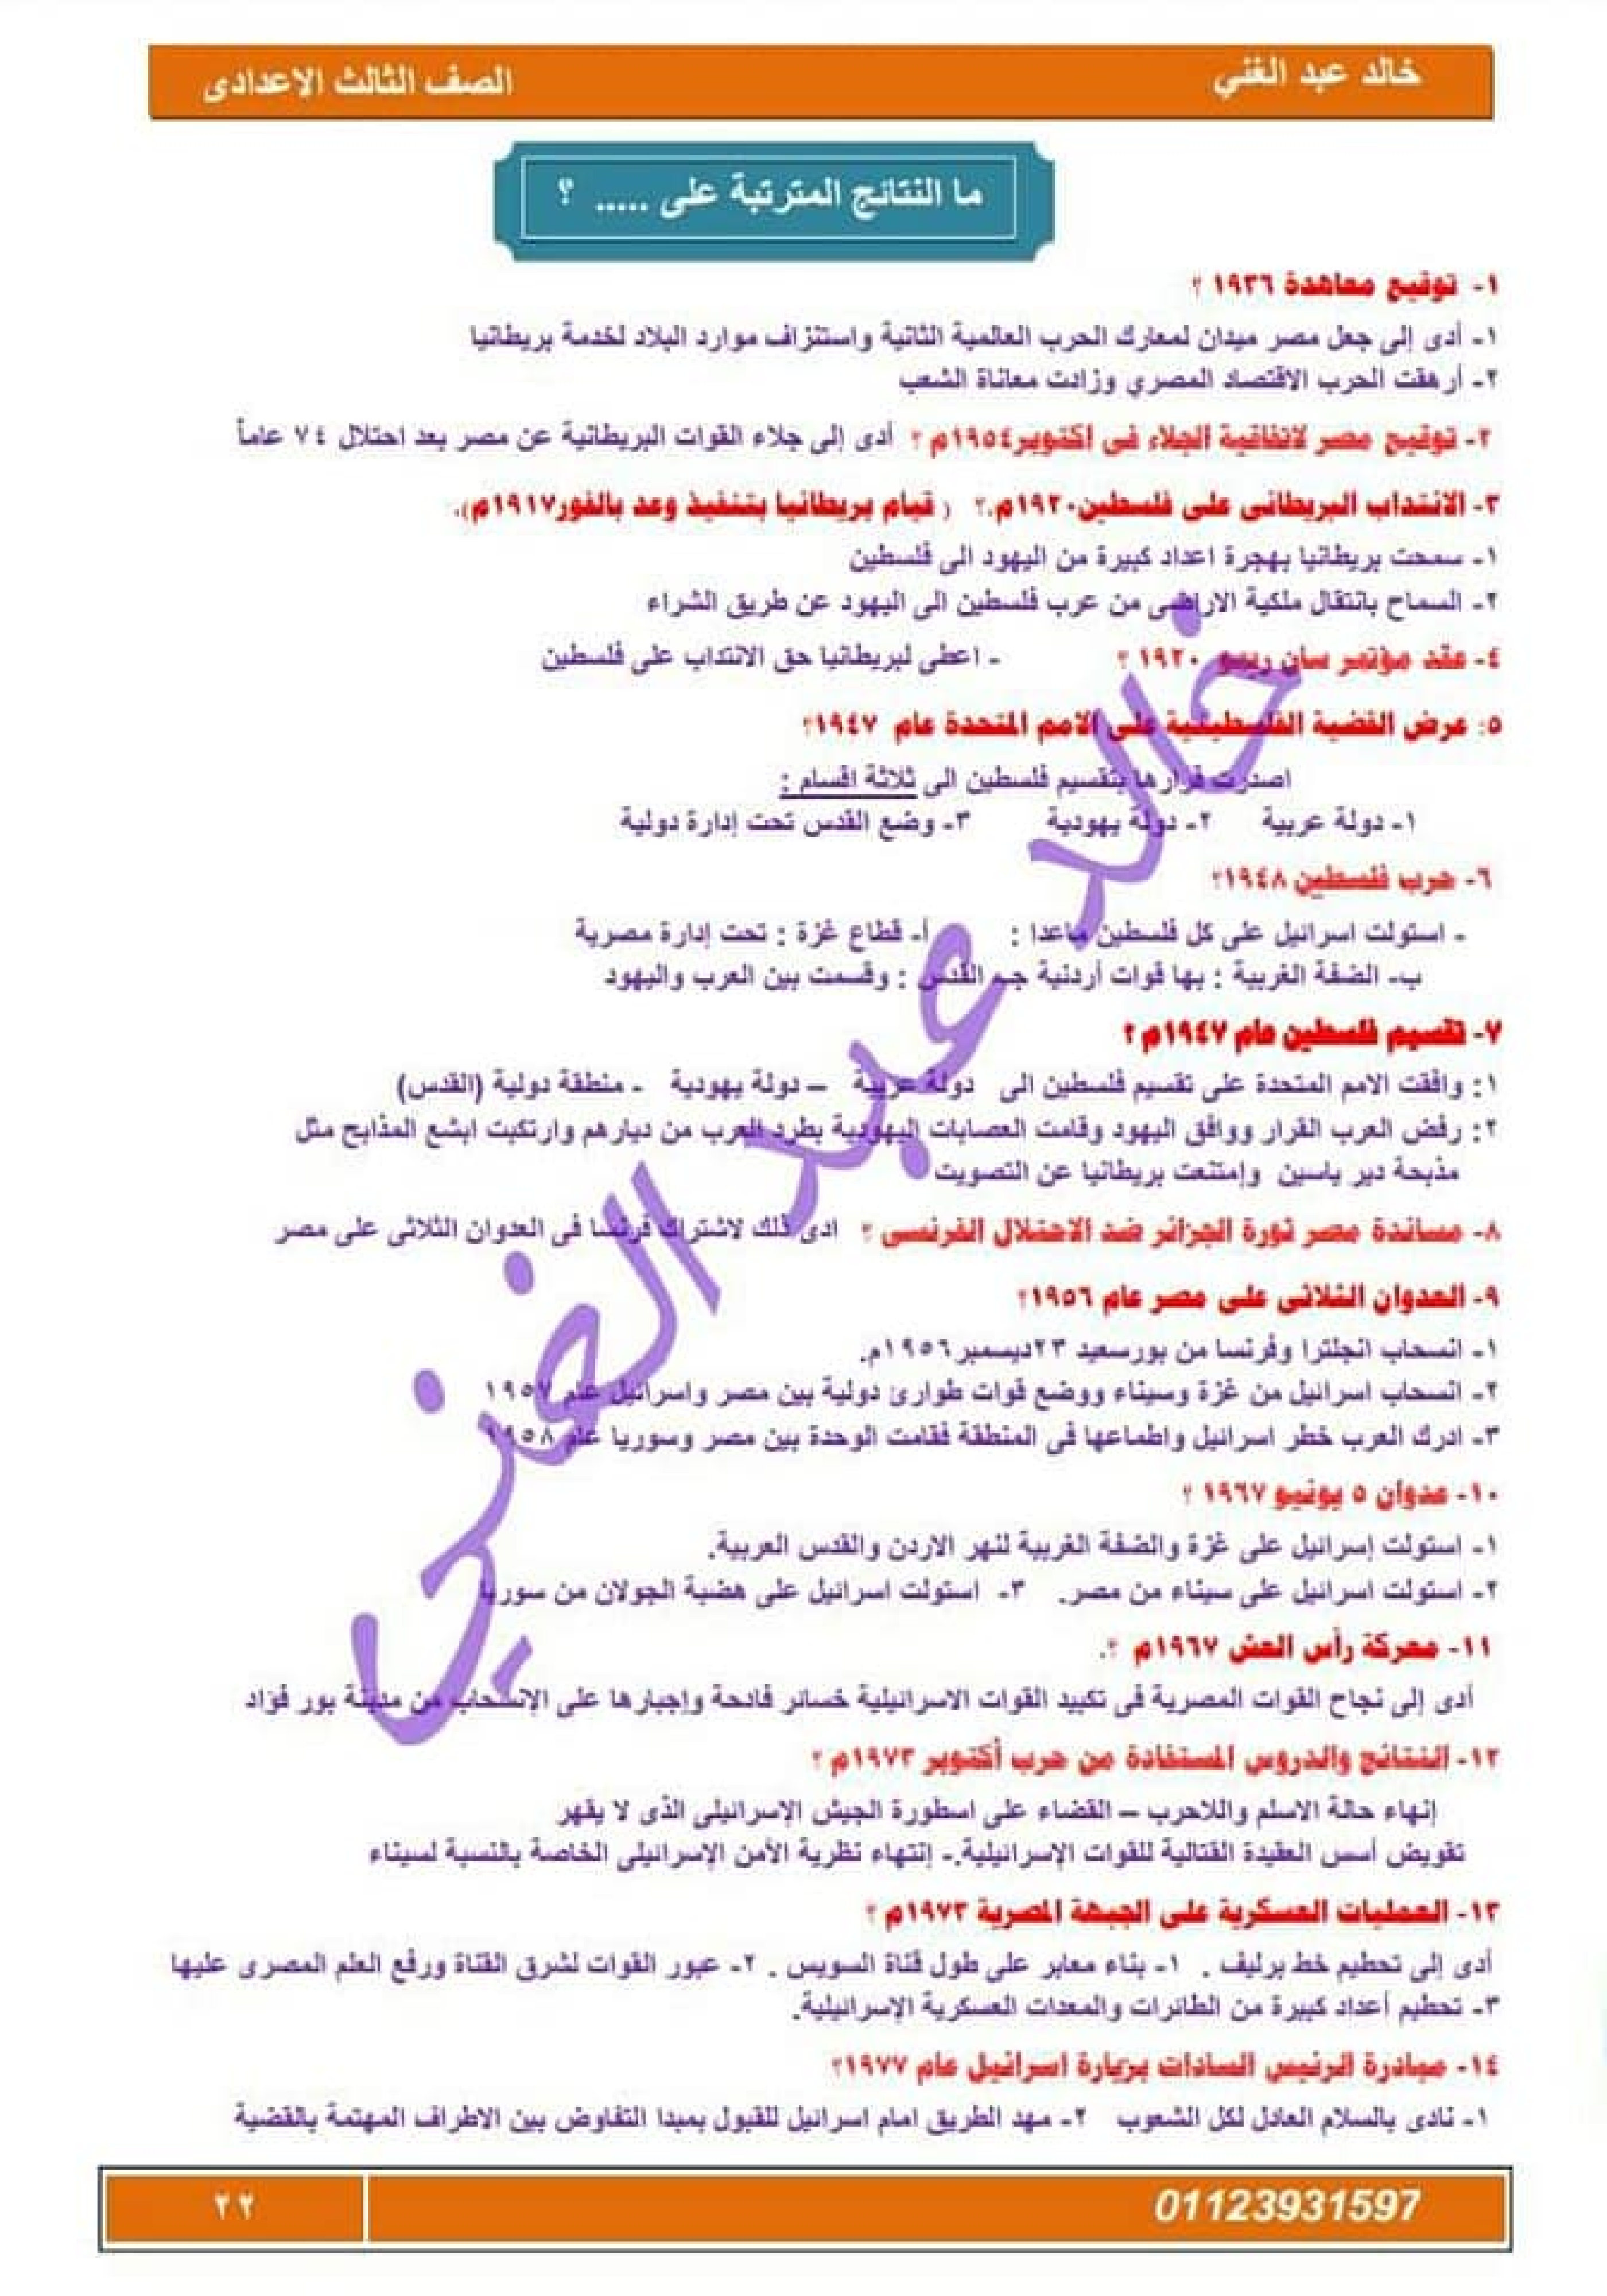 خالد عبد الغني
الصف الثالث الاعدادى
ما النتائج المترتبة على ..... ؟
١- توقيع معاهدة ١٩٣٦ ؟
١- أدى إلى جعل مصر ميدان لمعارك الحرب العالمية الثانية واستنزاف موارد البلاد لخدمة بريطانيا
٢- أرهقت الحرب الاقتصاد المصري وزادت معاناة الشعب
٢- توقيع مصر لاتفاقية الجلاء فى اكتوبر١٩٥٤م ؟ أدى إلى جلاء القوات البريطانية عن مصر بعد احتلال ٧٤ عاماً
٣- الانتداب البريطانى على فلسطين١٩٢٠م.؟ ( قيام بريطانيا بتنفيذ وعد بالفور١٩١٧م).
١- سمحت بريطانيا بهجرة اعداد كبيرة من اليهود الى فلسطين
٢- السماح بانتقال ملكية الاراضى من عرب فلسطين الى اليهود عن طريق الشراء
٤- عقد مؤتمر سان ريمو ١٩٢٠ ؟ - اعطى لبريطانيا حق الانتداب على فلسطين
٥: عرض القضية الفلسطينية على الامم المتحدة عام ١٩٤٧؟
اصدرت قرارها بتقسيم فلسطين الى ثلاثة اقسام :
١- دولة عربية ٢- دولة يهودية ٣- وضع القدس تحت إدارة دولية
٦- حرب فلسطين ١٩٤٨؟
- استولت اسرائيل على كل فلسطين ماعدا : أ- قطاع غزة : تحت إدارة مصرية
ب- الضفة الغربية : بها قوات أردنية جـ- القدس : وقسمت بين العرب واليهود
٧- تقسيم فلسطين عام ١٩٤٧م ؟
١: وافقت الامم المتحدة على تقسيم فلسطين الى دولة عربية – دولة يهودية - منطقة دولية (القدس)
٢: رفض العرب القرار ووافق اليهود وقامت العصابات اليهودية بطرد العرب من ديارهم وارتكبت ابشع المذابح مثل
مذبحة دير ياسين وإمتنعت بريطانيا عن التصويت
٨- مساندة مصر ثورة الجزائر ضد الاحتلال الفرنسى ؟ ادى ذلك لاشتراك فرنسا فى العدوان الثلاثى على مصر
٩- العدوان الثلاثى على مصر عام ١٩٥٦؟
١- انسحاب انجلترا وفرنسا من بورسعيد ٢٣ديسمبر١٩٥٦م.
٢- انسحاب اسرائيل من غزة وسيناء ووضع قوات طوارئ دولية بين مصر واسرائيل عام ١٩٥٧
٣- ادرك العرب خطر اسرائيل واطماعها فى المنطقة فقامت الوحدة بين مصر وسوريا عام ١٩٥٨
١٠- عدوان ٥ يونيو ١٩٦٧ ؟
١- استولت إسرائيل على غزة والضفة الغربية لنهر الاردن والقدس العربية.
٢- استولت اسرائيل على سيناء من مصر. ٣- استولت اسرائيل على هضبة الجولان من سوريا
١١- معركة رأس العش ١٩٦٧م ؟.
أدى إلى نجاح القوات المصرية فى تكبيد القوات الاسرائيلية خسائر فادحة وإجبارها على الإنسحاب من مدينة بور فؤاد
١٢- النتائج والدروس المستفادة من حرب أكتوبر ١٩٧٣م ؟
إنهاء حالة الاسلم واللاحرب – القضاء على اسطورة الجيش الإسرائيلى الذى لا يقهر
تقويض أسس العقيدة القتالية للقوات الإسرائيلية.- إنتهاء نظرية الأمن الإسرائيلى الخاصة بالنسبة لسيناء
١٣- العمليات العسكرية على الجبهة المصرية ١٩٧٣م ؟
أدى إلى تحطيم خط برليف . ١- بناء معابر على طول قناة السويس . ٢- عبور القوات لشرق القناة ورفع العلم المصرى عليها
٣- تحطيم أعداد كبيرة من الطائرات والمعدات العسكرية الإسرائيلية.
١٤- مبادرة الرئيس السادات بزيارة اسرائيل عام ١٩٧٧؟
١- نادى بالسلام العادل لكل الشعوب ٢- مهد الطريق امام اسرائيل للقبول بمبدا التفاوض بين الاطراف المهتمة بالقضية
خالد عبد الغني
01123931597
٢٢